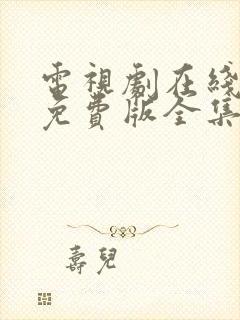 電視劇在綫
免費版全集
壽兒